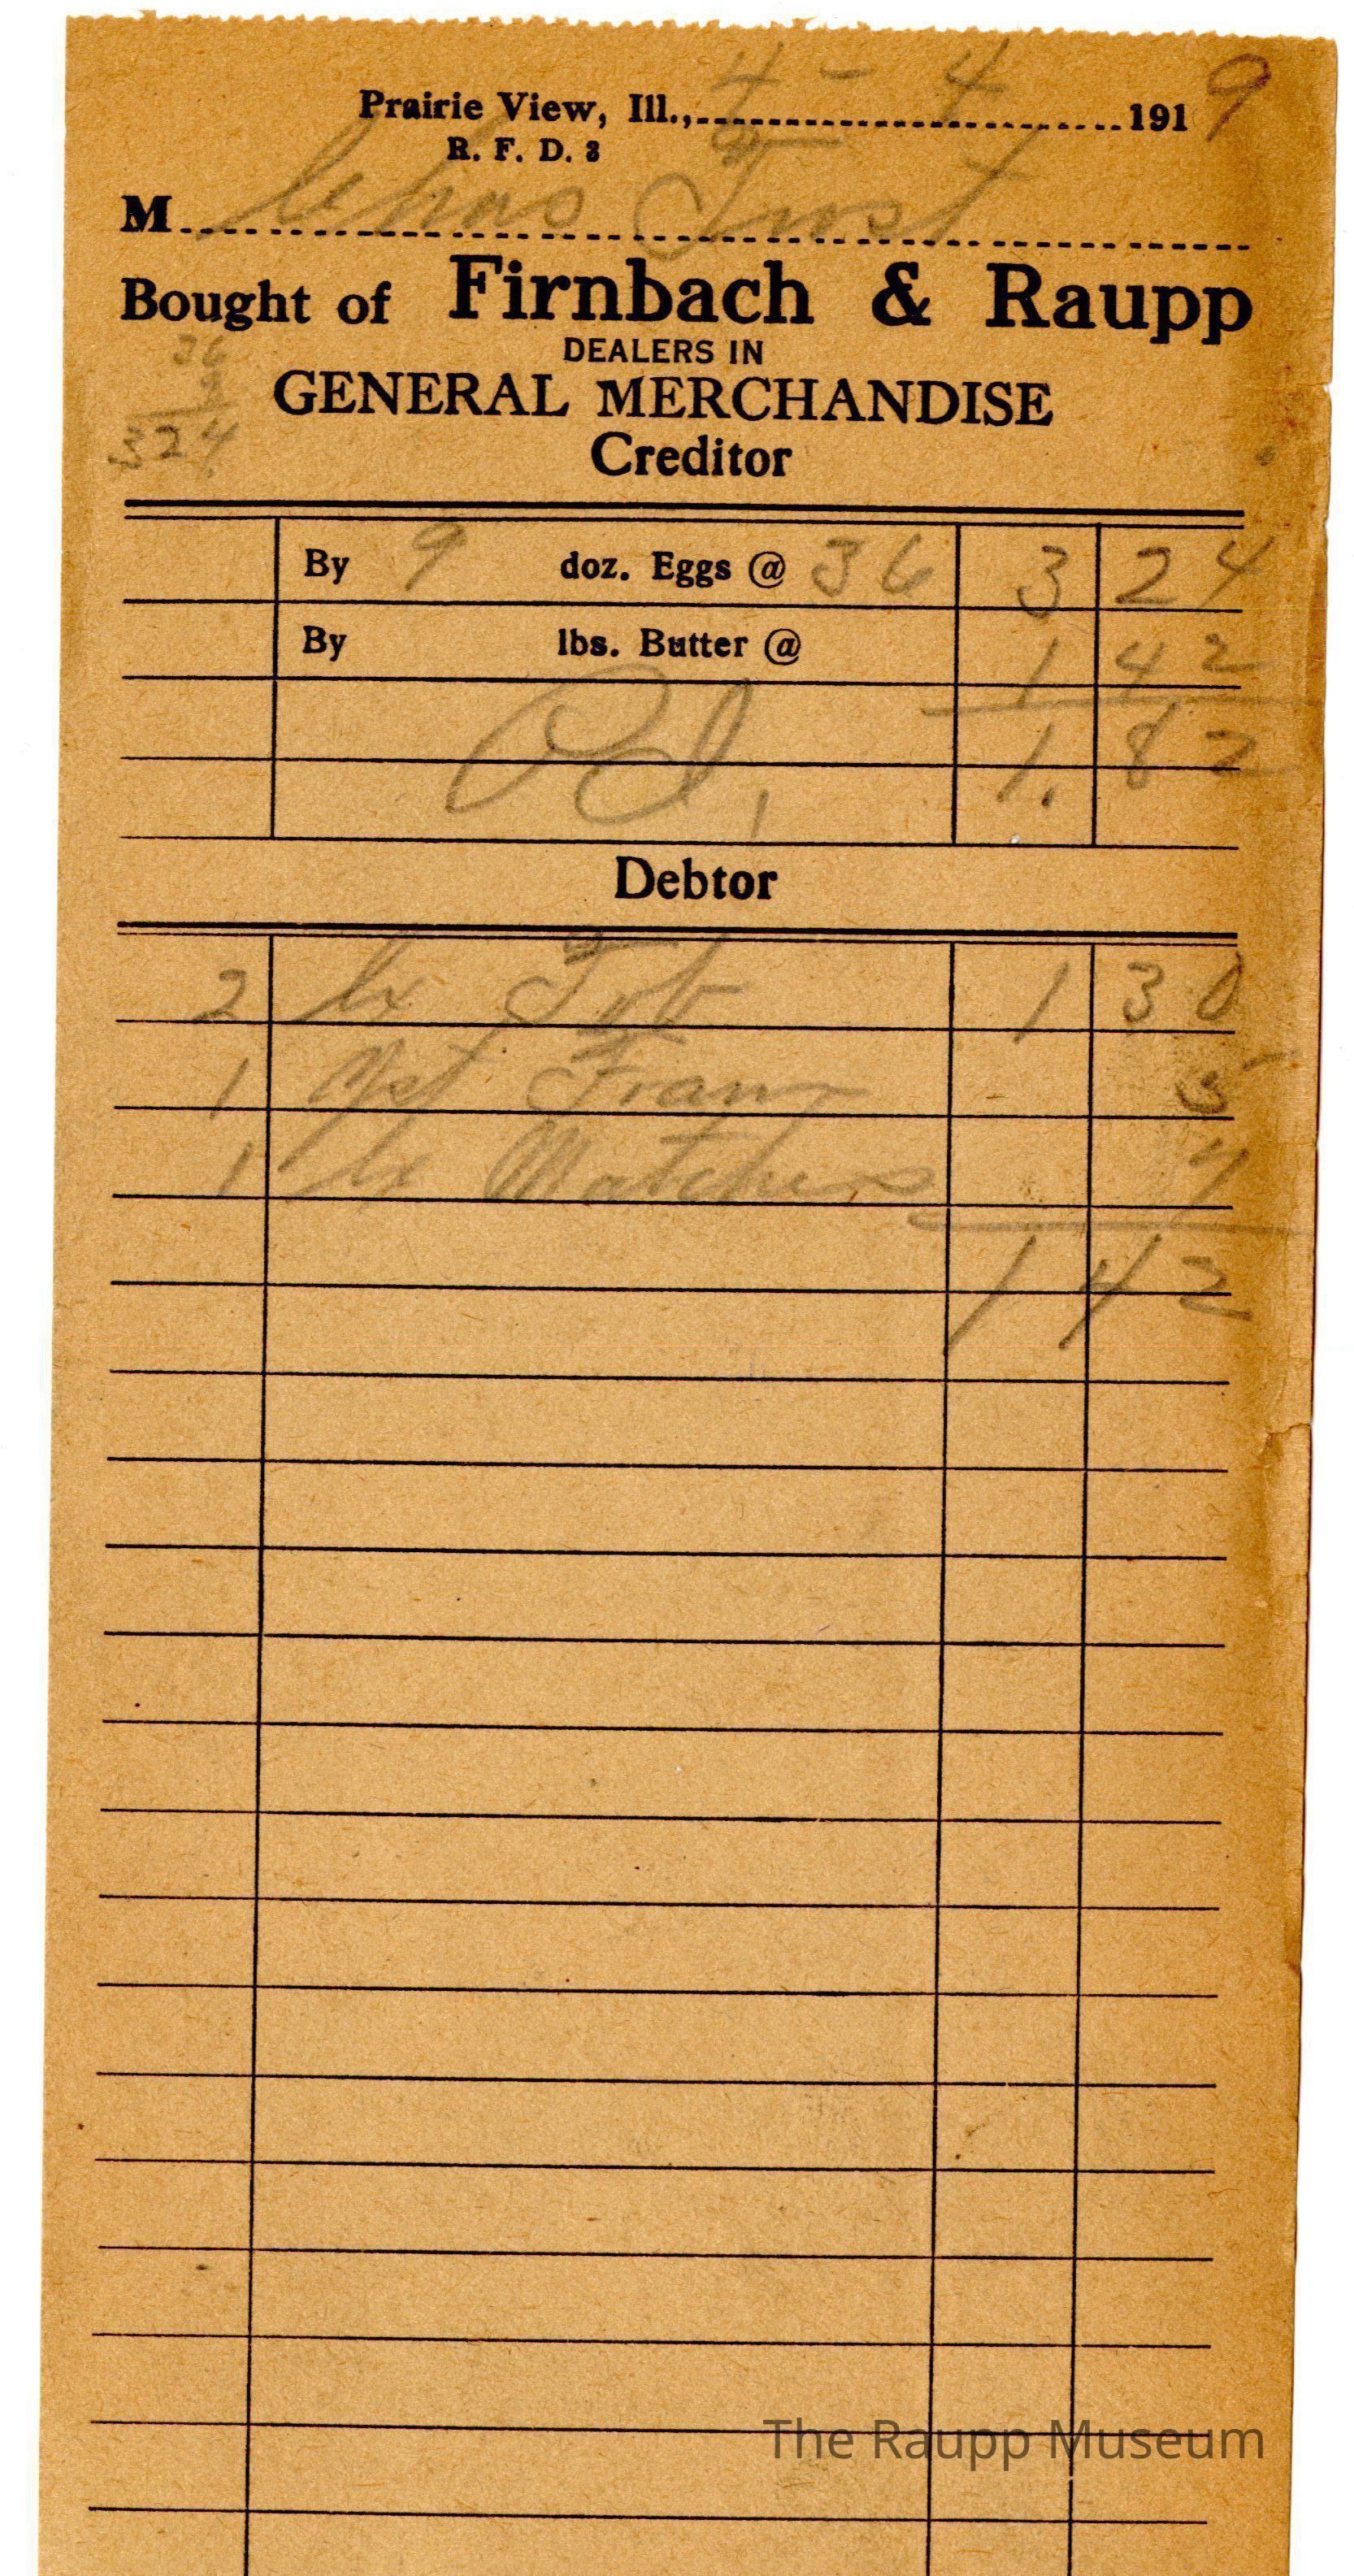 4 - 4
Prairie View, Ill., 191 9
R. F. D. 3
M Chas Tust
Bought of Firnbach & Raupp
DEALERS IN
GENERAL MERCHANDISE
36
9
324
Creditor
By 9 doz. Eggs @ 36 3 24
By lbs. Butter @ 1 42
Pd, 1.82
Debtor
2 bx 1 30
1 5
1 bx Matches 7
1 42
The Raupp Museum